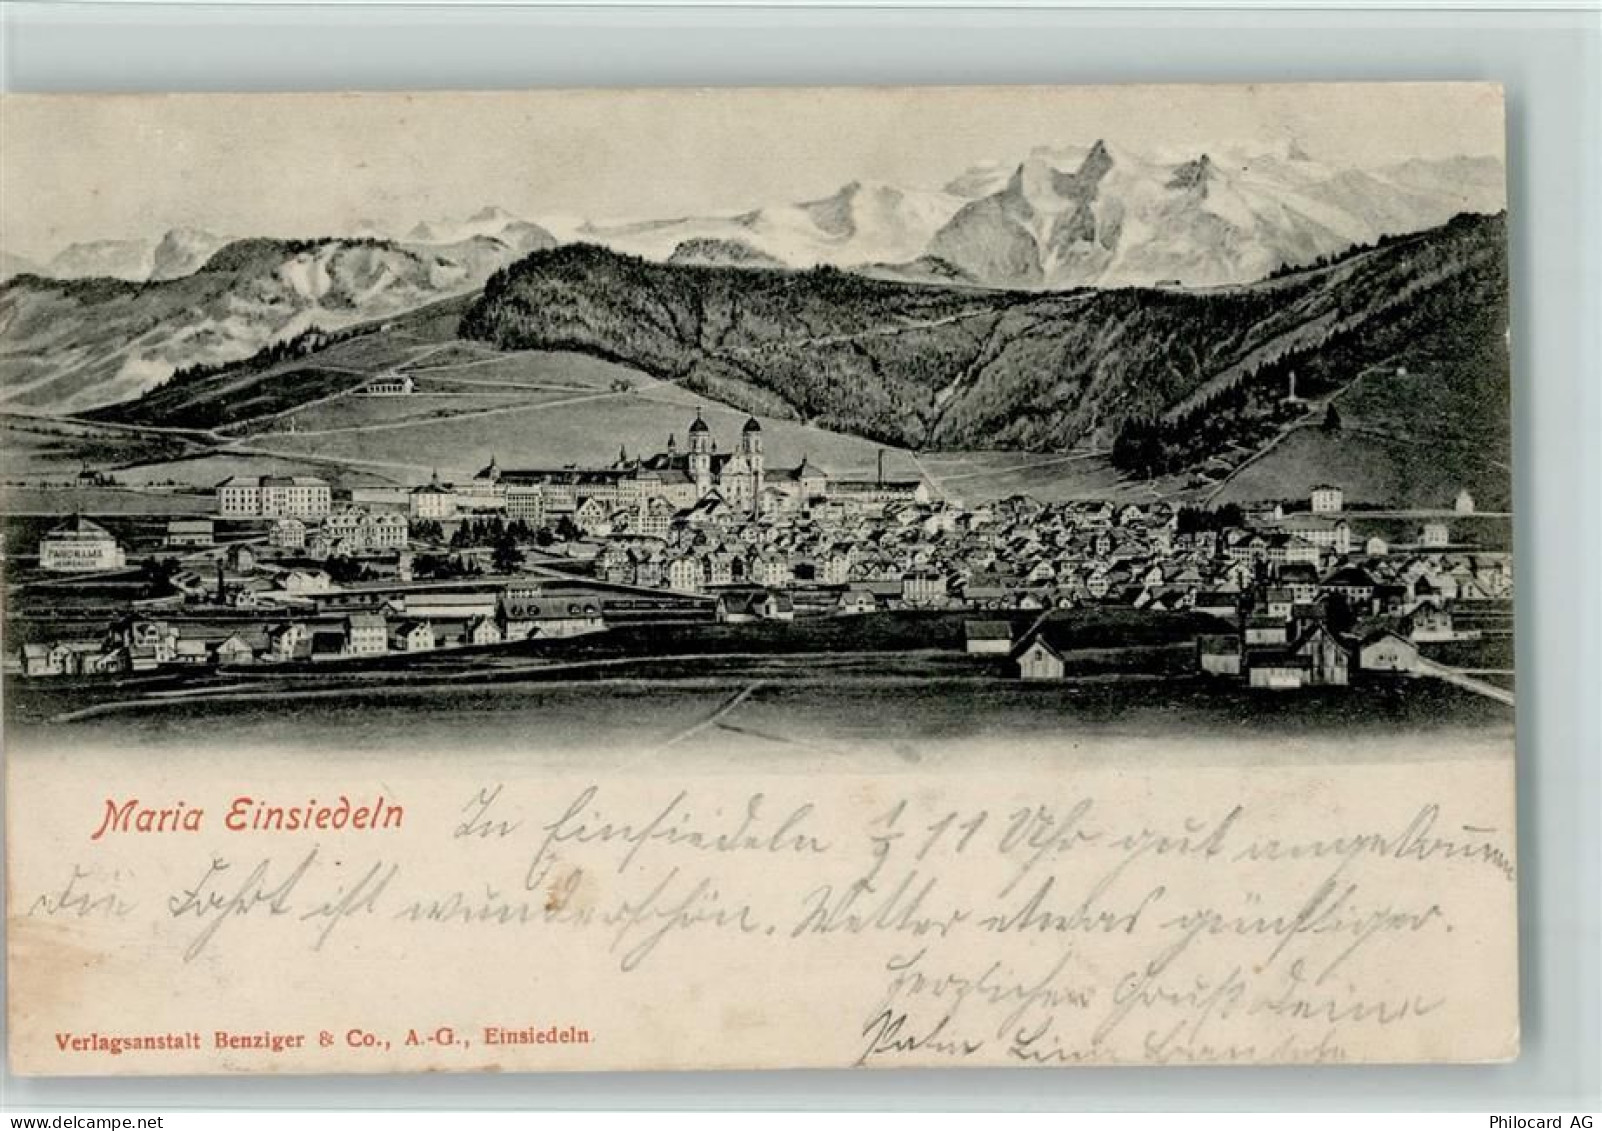 PANORAMA
Maria Einsiedeln
In Einsiedeln 1/2 11 Uhr gut angekommen
die Fahrt ist wunderschön. Wetter etwas günstiger.
Herzlichen Gruß Deine
Verlagsanstalt Benziger & Co., A.-G., Einsiedeln.
Lina
Philocard AG